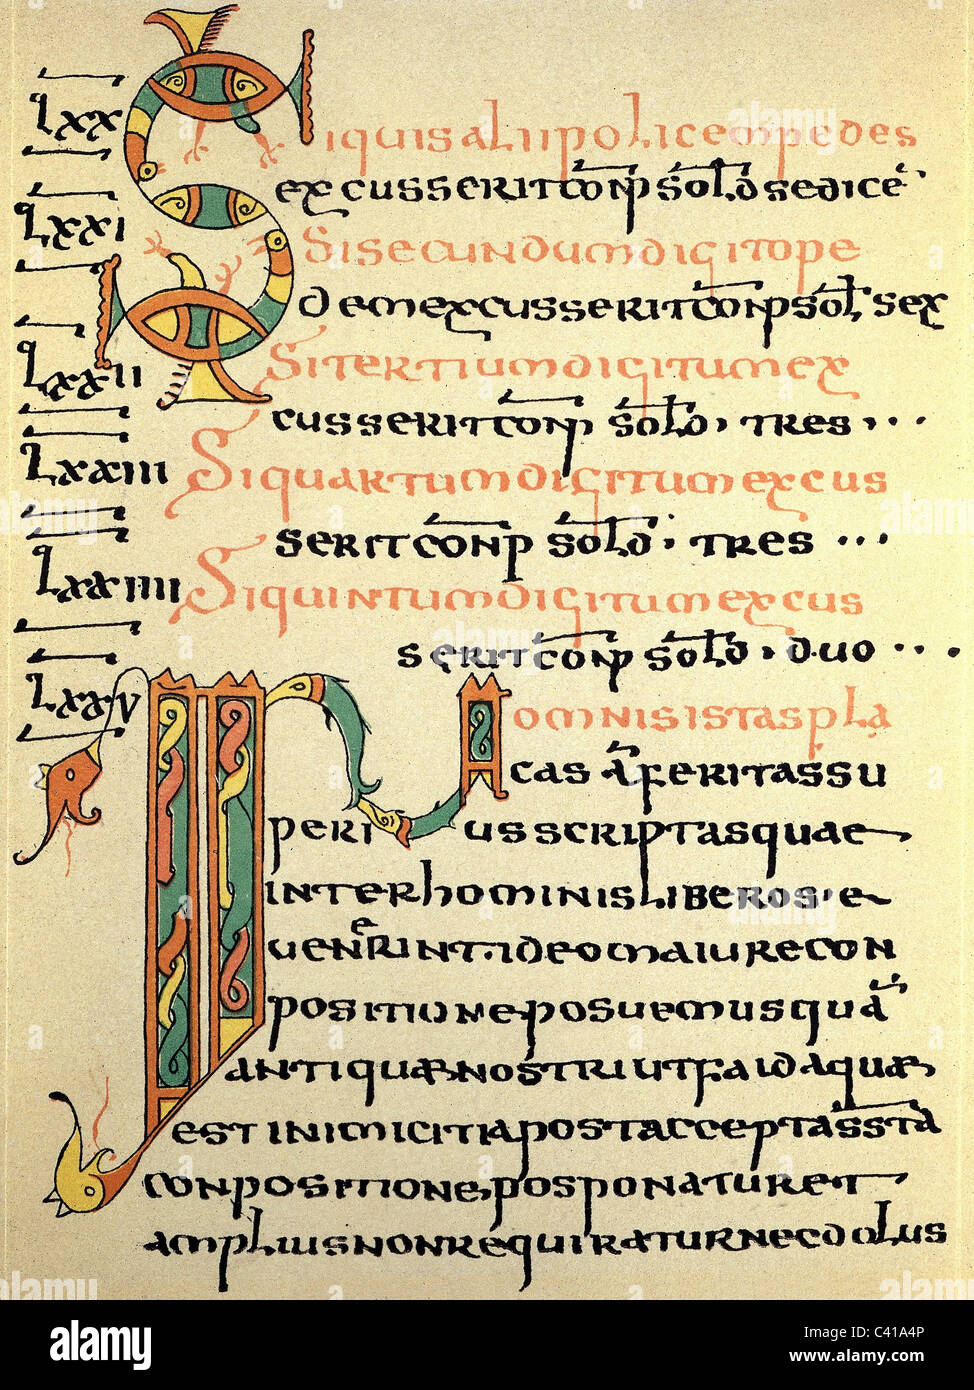 Lxx
Siquisaliipolicempedes
excusseritconpsoldsedice
Lxxi
Sisecundumdigitope
demexcusseritconpsoldsex
Lxxii
Sitertiumdigitumex
cusseritconpsold·tres···
Lxxiii
Siquartumdigitumexcus
seritconpsold·tres···
Lxxiiii
Siquintumdigitumexcus
seritconpsold·duo···
Lxxv
INomnisistaspla
casaferitassu
periusscriptasquae
interhominisliberos·e
uenerint·ideomaiurecon
positioneposuemusqua
antiquaenostriutfaidaquae
estinimicitiapostacceptassta
conpositionepostponaturet
ampliusnonrequiraturnecdolus
alamy
Image ID: C41A4P
www.alamy.com